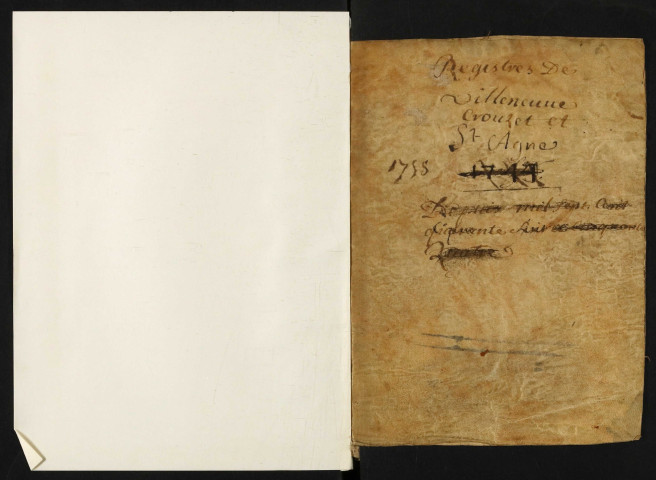 Registres De
Villeneuve
Crouzet et
St Agne
1755 1744
Depuis mil sept Cent
quarante huit et cinquante
Quatre